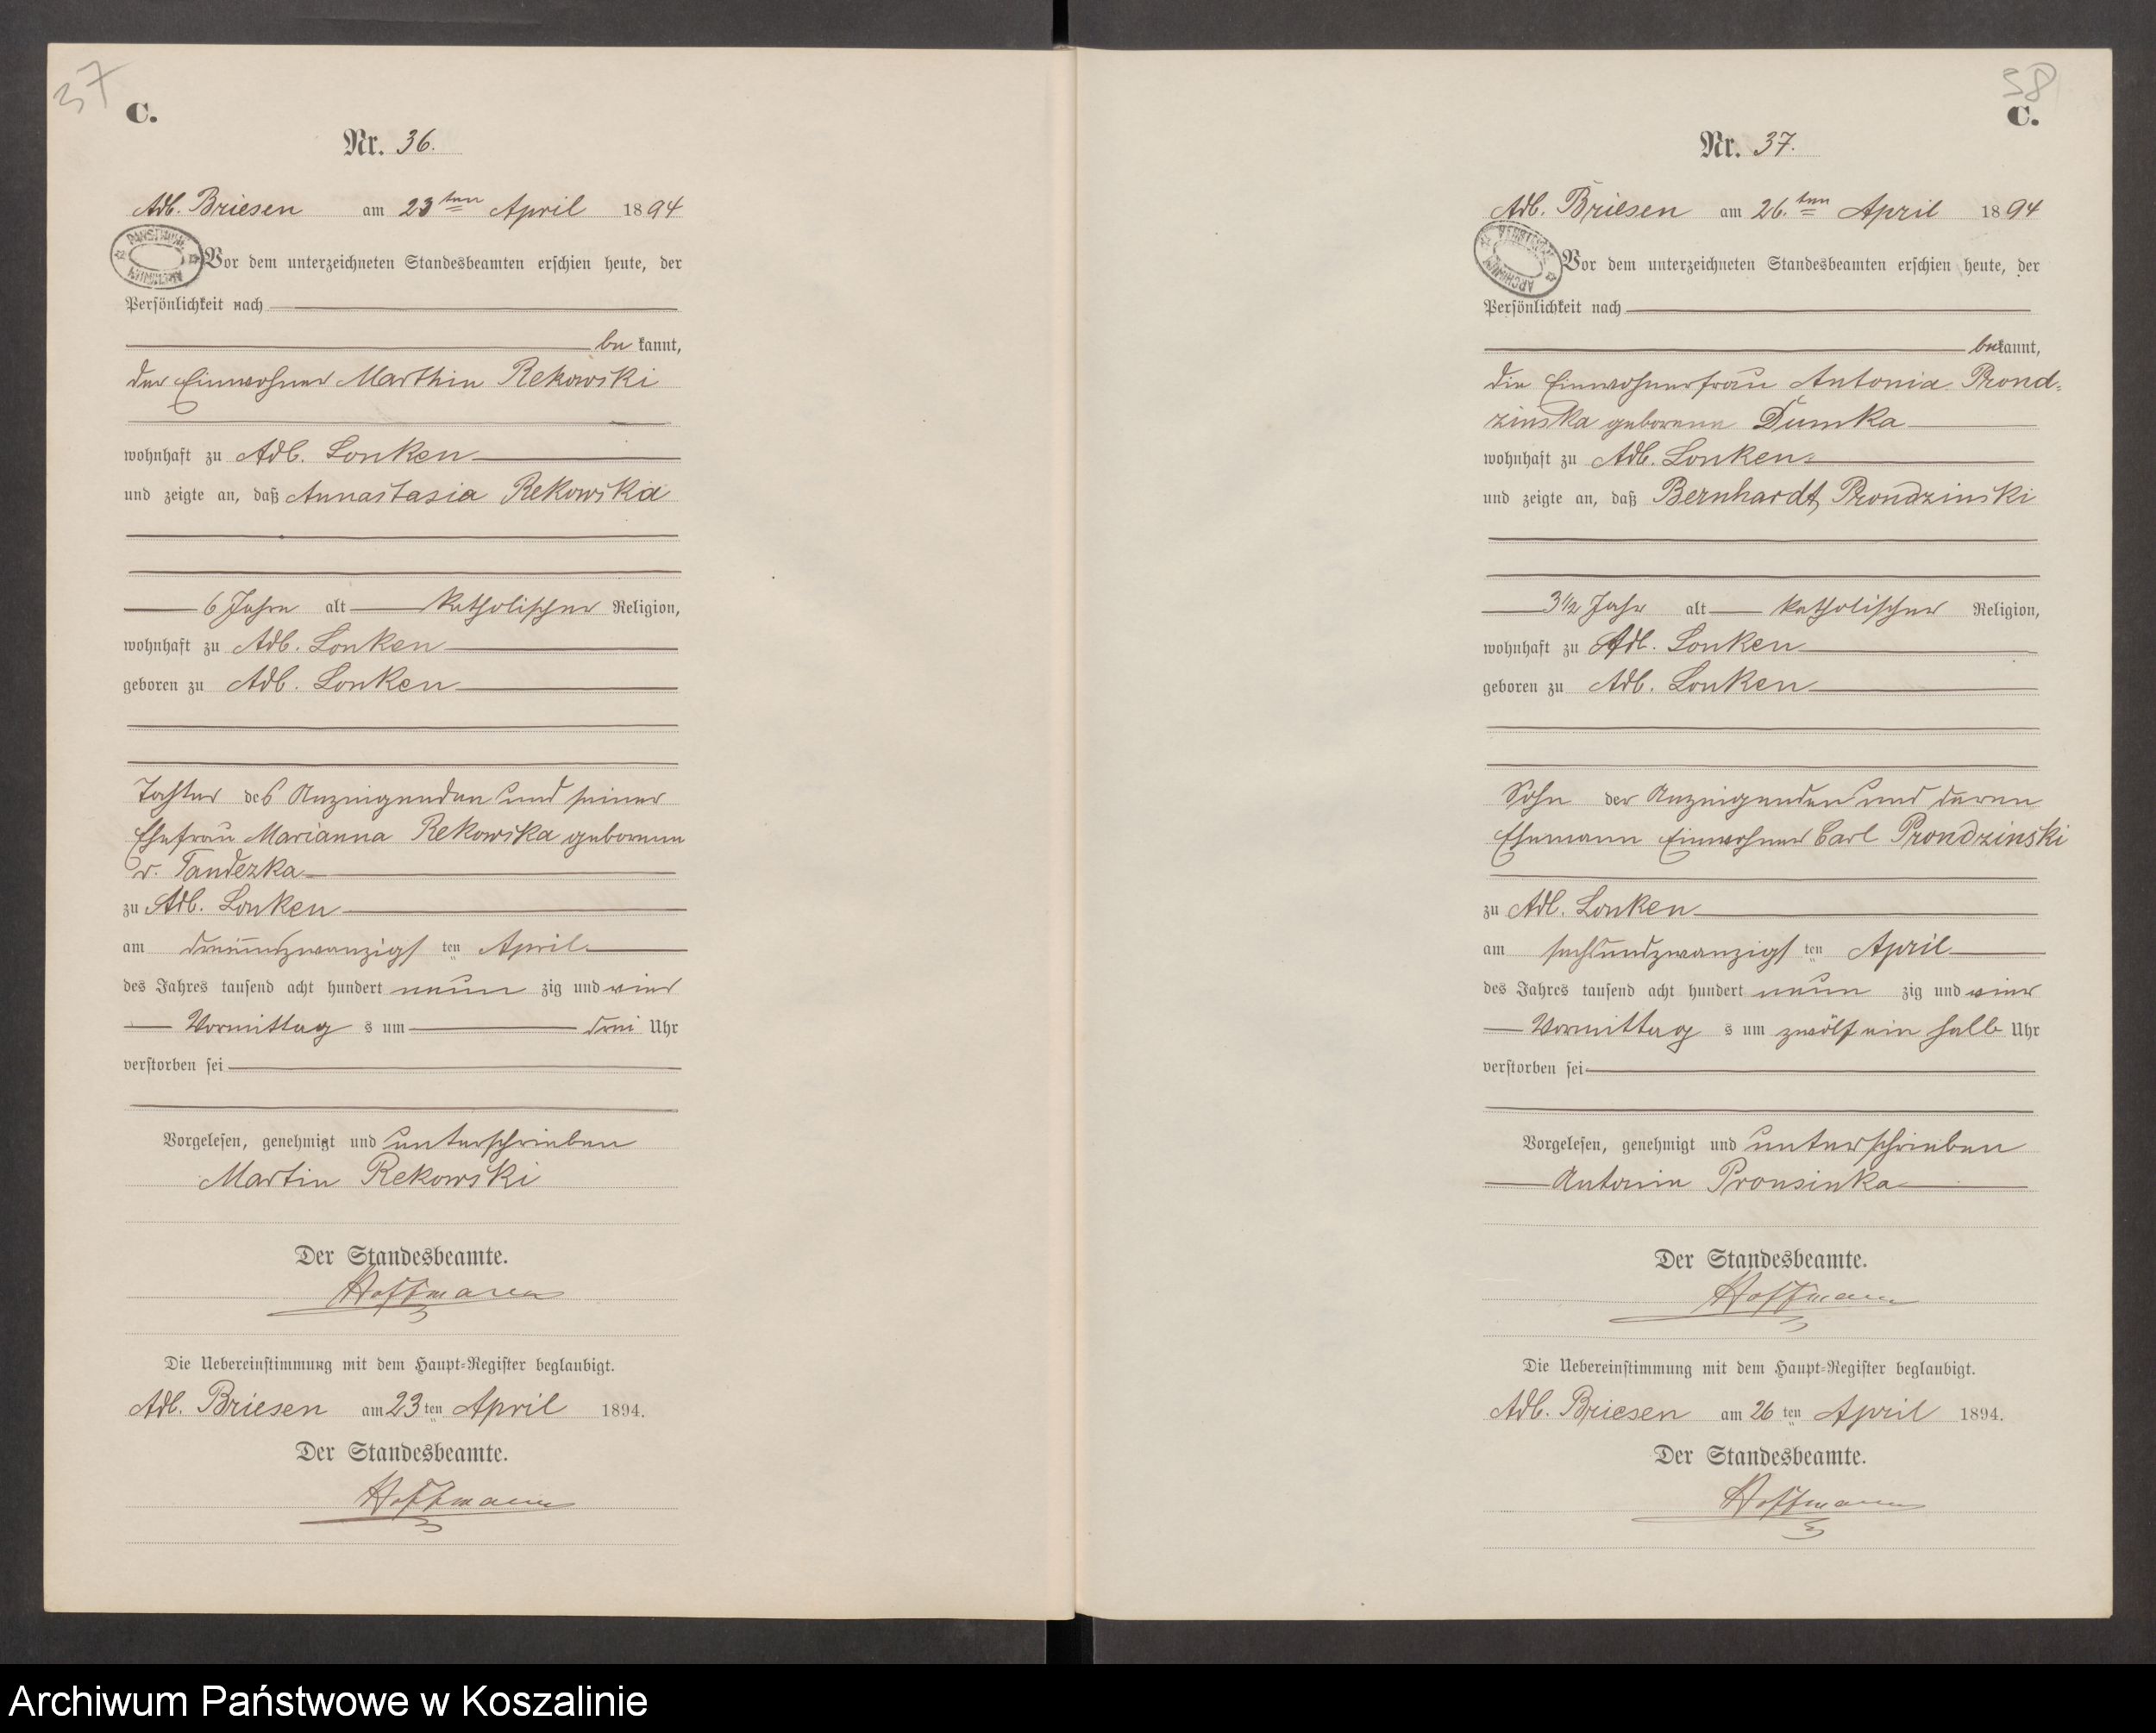 37
C.
Nr. 36.
Adl. Briesen am 23ten April 1894
Vor dem unterzeichneten Standesbeamten erschien heute, der
Persönlichkeit nach
be kannt,
der Einwohner Marthin Rekowski
wohnhaft zu Adl. Lonken
und zeigte an, daß Annastasia Rekowska
6 Jahre alt katholischer Religion,
wohnhaft zu Adl. Lonken
geboren zu Adl. Lonken
Tochter des Anzeigenden und seiner
Ehefrau Marianna Rekowska geborene
v. Tandezka
zu Adl. Lonken
am dreiundzwanzigsten April
des Jahres tausend acht hundert neun zig und vier
Vormittag s um drei Uhr
verstorben sei
Vorgelesen, genehmigt und unterschrieben
Martin Rekowski
Der Standesbeamte.
Hoffmann
Die Uebereinstimmung mit dem Haupt-Register beglaubigt.
Adl. Briesen am 23 ten April 1894.
Der Standesbeamte.
Hoffmann
38
C.
Nr. 37.
Adl. Briesen am 26.ten April 1894
Vor dem unterzeichneten Standesbeamten erschien heute, der
Persönlichkeit nach
bekannt,
die Einwohnerfrau Antonia Prond-
zinska geborene Dumka
wohnhaft zu Adl. Lonken
und zeigte an, daß Bernhardt Prondzinski
3 1/2 Jahr alt katholischer Religion,
wohnhaft zu Adl. Lonken
geboren zu Adl. Lonken
Sohn der Anzeigenden und deren
Ehemann Einwohner Carl Prondzinski
zu Adl. Lonken
am sechsundzwanzigsten April
des Jahres tausend acht hundert neun zig und vier
Vormittag s um zwölf ein halb Uhr
verstorben sei
Vorgelesen, genehmigt und unterschrieben
Antonia Pronsinka
Der Standesbeamte.
Hoffmann
Die Uebereinstimmung mit dem Haupt-Register beglaubigt.
Adl. Briesen am 26 ten April 1894.
Der Standesbeamte.
Hoffmann
Archiwum Państwowe w Koszalinie